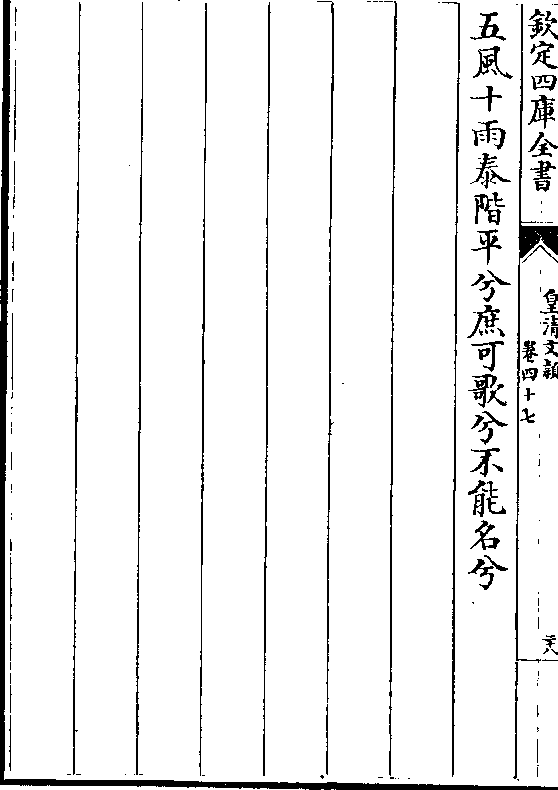 欽定四庫全書
皇清文穎
卷四十七
二十八
五風十雨泰階平兮庶可歌兮不能名兮